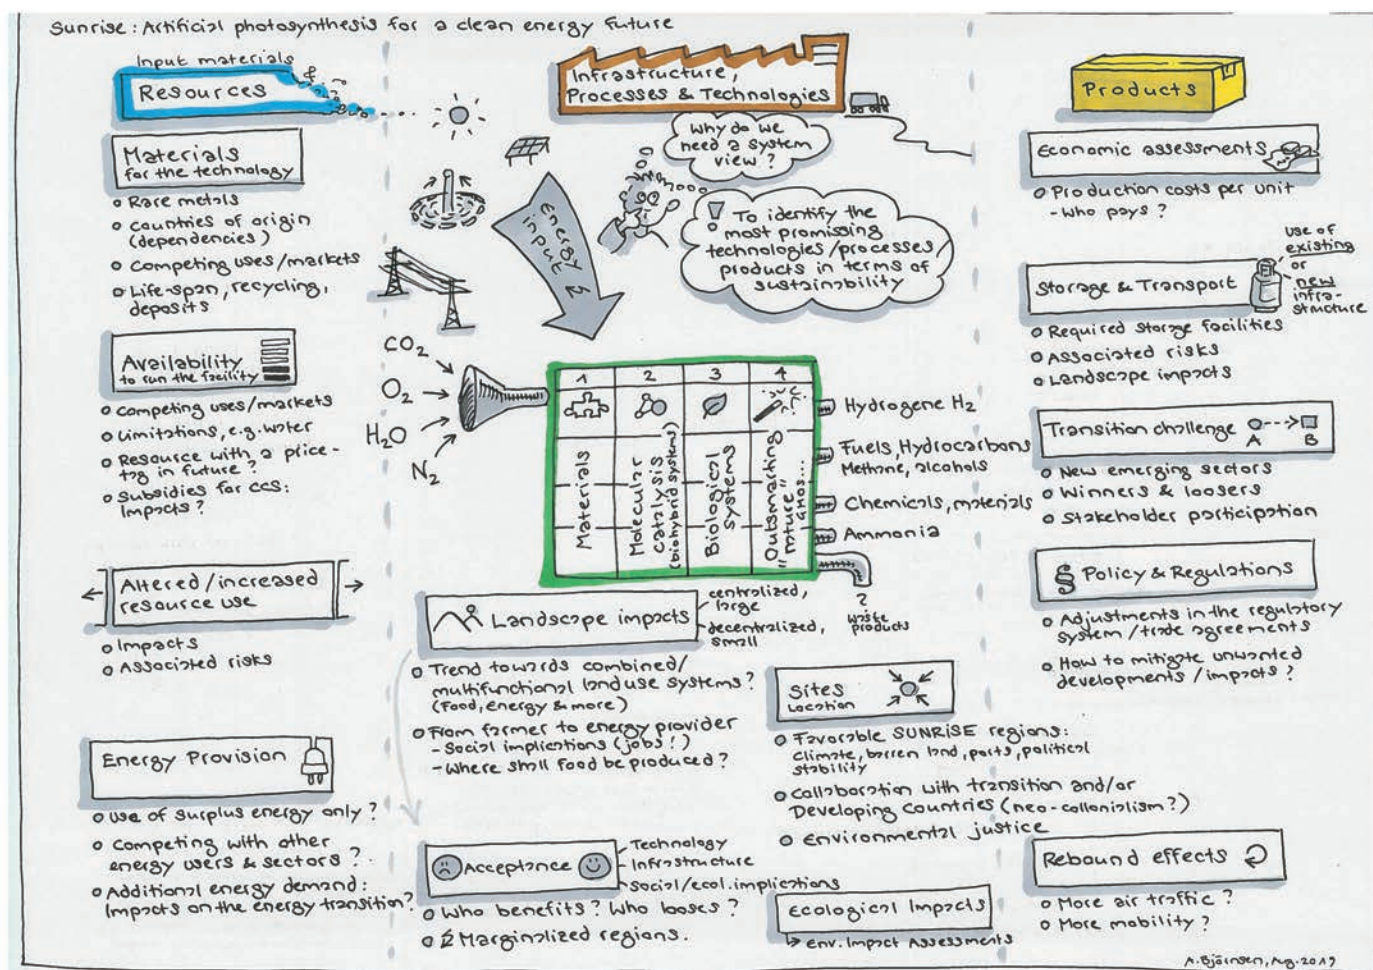 Sunrise: Artificial photosynthesis for a clean energy future
Input materials
Resources
Materials
for the technology
Rare metals
Countries of origin
(dependencies)
Competing uses/markets
Life-span, recycling,
deposits
Availability
to run the facility
Competing uses/markets
Limitations, e.g. water
Resource with a price-
tag in future?
Subsidies for CCS:
Impacts?
Altered/increased
resource use
Impacts
Associated risks
Energy Provision
Use of surplus energy only?
Competing with other
energy users & sectors?
Additional energy demand:
Impacts on the energy transition?
Infrastructure,
Processes & Technologies
Why do we
need a system
view?
! To identify the
most promissing
technologies/processes/
products in terms of
sustainability
Energy
input
CO2
O2
H2O
N2
1
2
3
4
Materials
Molecular
catalysis
(biohybrid systems)
Biological
systems
Outsmarting
"nature"
GMOs....
Hydrogene H2
Fuels, Hydrocarbons
Methane, alcohols
Chemicals, materials
Ammonia
?
waste
products
Landscape impacts
centralized,
large
decentralized,
small
Trend towards combined/
multifunctional land use systems?
(Food, energy & more)
From farmer to energy provider
- Social implications (jobs!)
- Where shall food be produced?
Acceptance
Technology
Infrastructure
Social/ecol. implications
Who benefits? Who looses?
Marginalized regions.
Sites
Location
Favorable SUNRISE regions:
climate, barren land, ports, political
stability
Collaboration with transition and/or
Developing Countries (neo-collonialism?)
Environmental justice
Ecological Impacts
Env. Impact Assessments
Products
Economic assessments
Production costs per unit
- Who pays?
Storage & Transport
use of
existing
or
new
infra-
structure
Required storage facilities
Associated risks
Landscape impacts
Transition challenge
A
B
New emerging sectors
Winners & loosers
Stakeholder participation
§ Policy & Regulations
Adjustments in the regulatory
system/trade agreements
How to mitigate unwanted
developments/impacts?
Rebound effects
More air traffic?
More mobility?
A. Björnsen, Aug. 2019